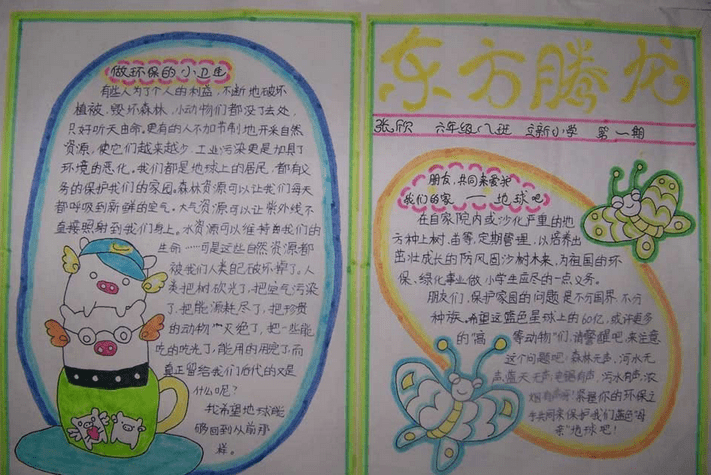 做环保的小卫士
有些人为了个人的利益,不断地破坏
植被,毁坏森林,小动物们都没了去处,
只好听天由命。更有的人不加节制地开来自然
资源,使它们越来越少。工业污染更是加具了
环境的恶化。我们都是地球上的居民,都有义
务的保护我们的家园。森林资源可以让我们每天
都呼吸到新鲜的空气。大气资源可以让紫外线不
直接照射到我们身上。水资源可以维持着我们的
生命……可是这些自然资源都
被我们人类自己破坏掉了。人
类把树砍光了,把空气污染
了,把能源耗尽了,把珍贵
的动物灭绝了,把一些能
吃的吃光了,能用的用完了,而
真正留给我们后代的又是
什么呢?
我希望地球能
够回到从前那
样。
东方腾龙
张欣 六年级八班 立新小学 第一期
朋友,共同来爱护
我们的家——地球吧
在自家院内或沙化严重的地
方种上树、苗等,定期管理,以培养出
茁壮成长的防风固沙树木来,为祖国的环
保、绿化事业做小学生应尽的一点义务。
朋友们,保护家园的问题是不分国界,不分
种族。希望这蓝色星球上的60亿,或许更多
的“高等动物”们,请警醒吧,来注意
这个问题吧:森林无声,河水无
声,蓝天无声;电锯有声,污水有声,浓
烟有声啊!紧握你的环保之
手共同来保护我们蓝色“母
亲”地球吧!